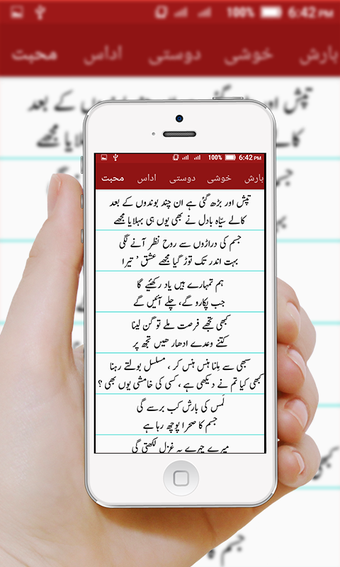 100% 6:42 PM
محبت اداس دوستی خوشی بارش
100% 6:42 PM
محبت اداس دوستی خوشی بارش
تپش اور بڑھ گئی ہے ان چند بوندوں کے بعد
کالے سیاہ بادل نے بھی یوں ہی بہلایا مجھے
جسم کی دراڑوں سے روح نظر آنے لگی
بہت اندر تک توڑ گیا مجھے عشق ' تیرا
ہم تمہارے ہیں یاد رکھئیے گا
جب پکارو گے، چلے آئیں گے
کبھی تجھے فرصت ملے تو گن لینا
کتنے وعدے ادھار ھیں تجھ پر
سبھی سے ملنا ہنس ہنس کر ، مسلسل بولتے رہنا
کبھی کیا تم نے دیکھی ہے ، کسی کی خامشی یوں بھی ؟
لمس کی بارش کب برسے گی
جسم کا صحرا پوچھ رہا ہے
میرے چہرے پہ غزل لکھتی گی